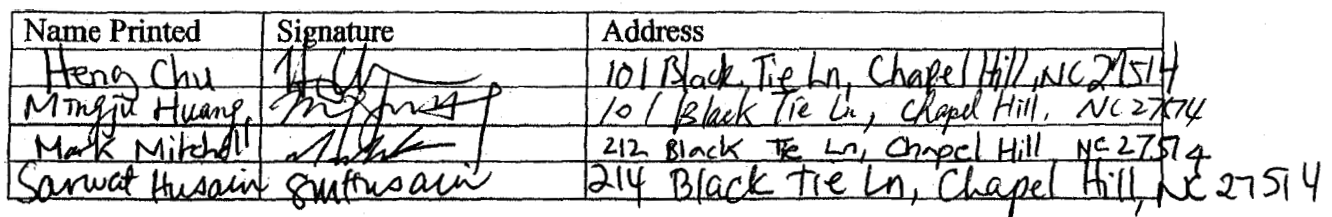 Name Printed Signature Address
Heng Chu 101 Black Tie Ln, Chapel Hill, NC 27514
Mingju Huang, 101 Black Tie Ln, Chapel Hill, NC 27514
Mark Mitchell 212 Black Tie Ln, Chapel Hill NC 27514
Sarwat Husain SMHusain 214 Black Tie Ln, Chapel Hill, NC 27514